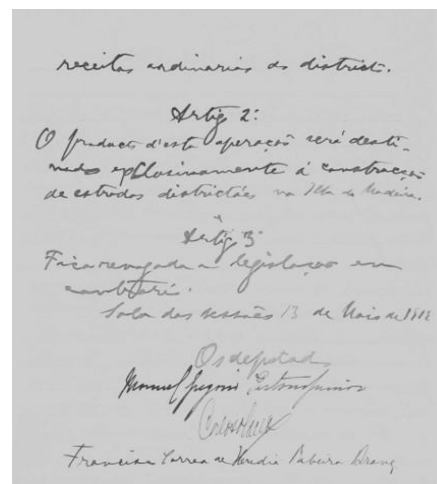 receitas ordinarias do districto.
Artigo 2º
O producto d'esta operação será desti-
nado exclusivamente á construcção
de estradas districtáes na Ilha da Madeira.
Artigo 3º
Fica revogada a legislação em
contrario.
Sala das sessões 13 de Maio de 1912
Os deputados
Manuel Gregorio Pestana Junior
Carlos Olavo
Francisco Correa de Heredia Ribeira Brava